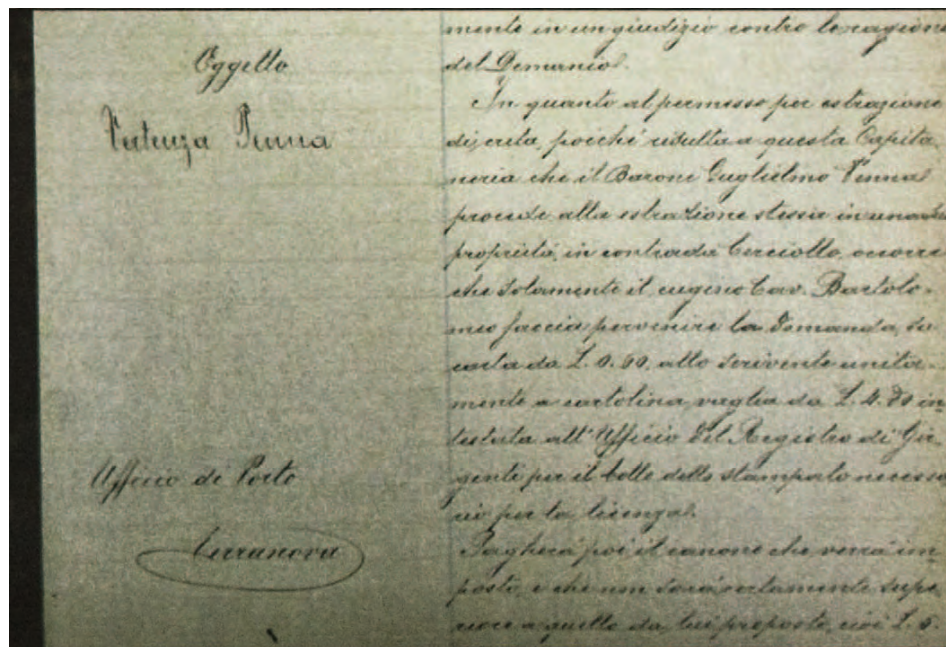 Oggetto
Vertenza Penna
Ufficio di Porto
Terranova
mente in un giudizio contro le ragioni
del Demanio.
In quanto al permesso per estrazione
di creta, poichè risulta a questa Capita
neria che il Barone Guglielmo Penna
procede alla estrazione stessa in una
proprietà, in contrada occorre
che solamente il cugino Cav. Bartolo-
meo faccia pervenire la domanda, su
carta da L. 0.60, allo scrivente unita-
mente a cartolina vaglia da L. 4. in
testata all'Ufficio del Registro di Gir
genti per il bollo dello stampato necessa
rio per la licenza.
Pagherà poi il canone che verrà im
posto, e che non sarà certamente supe
riore a quello da lui proposto, cioè L. 5.